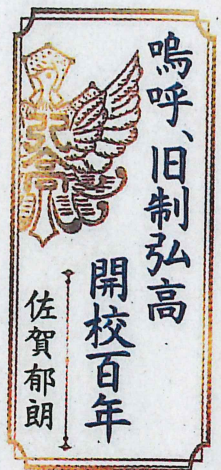 嗚呼、旧制弘高
開校百年
佐賀郁朗